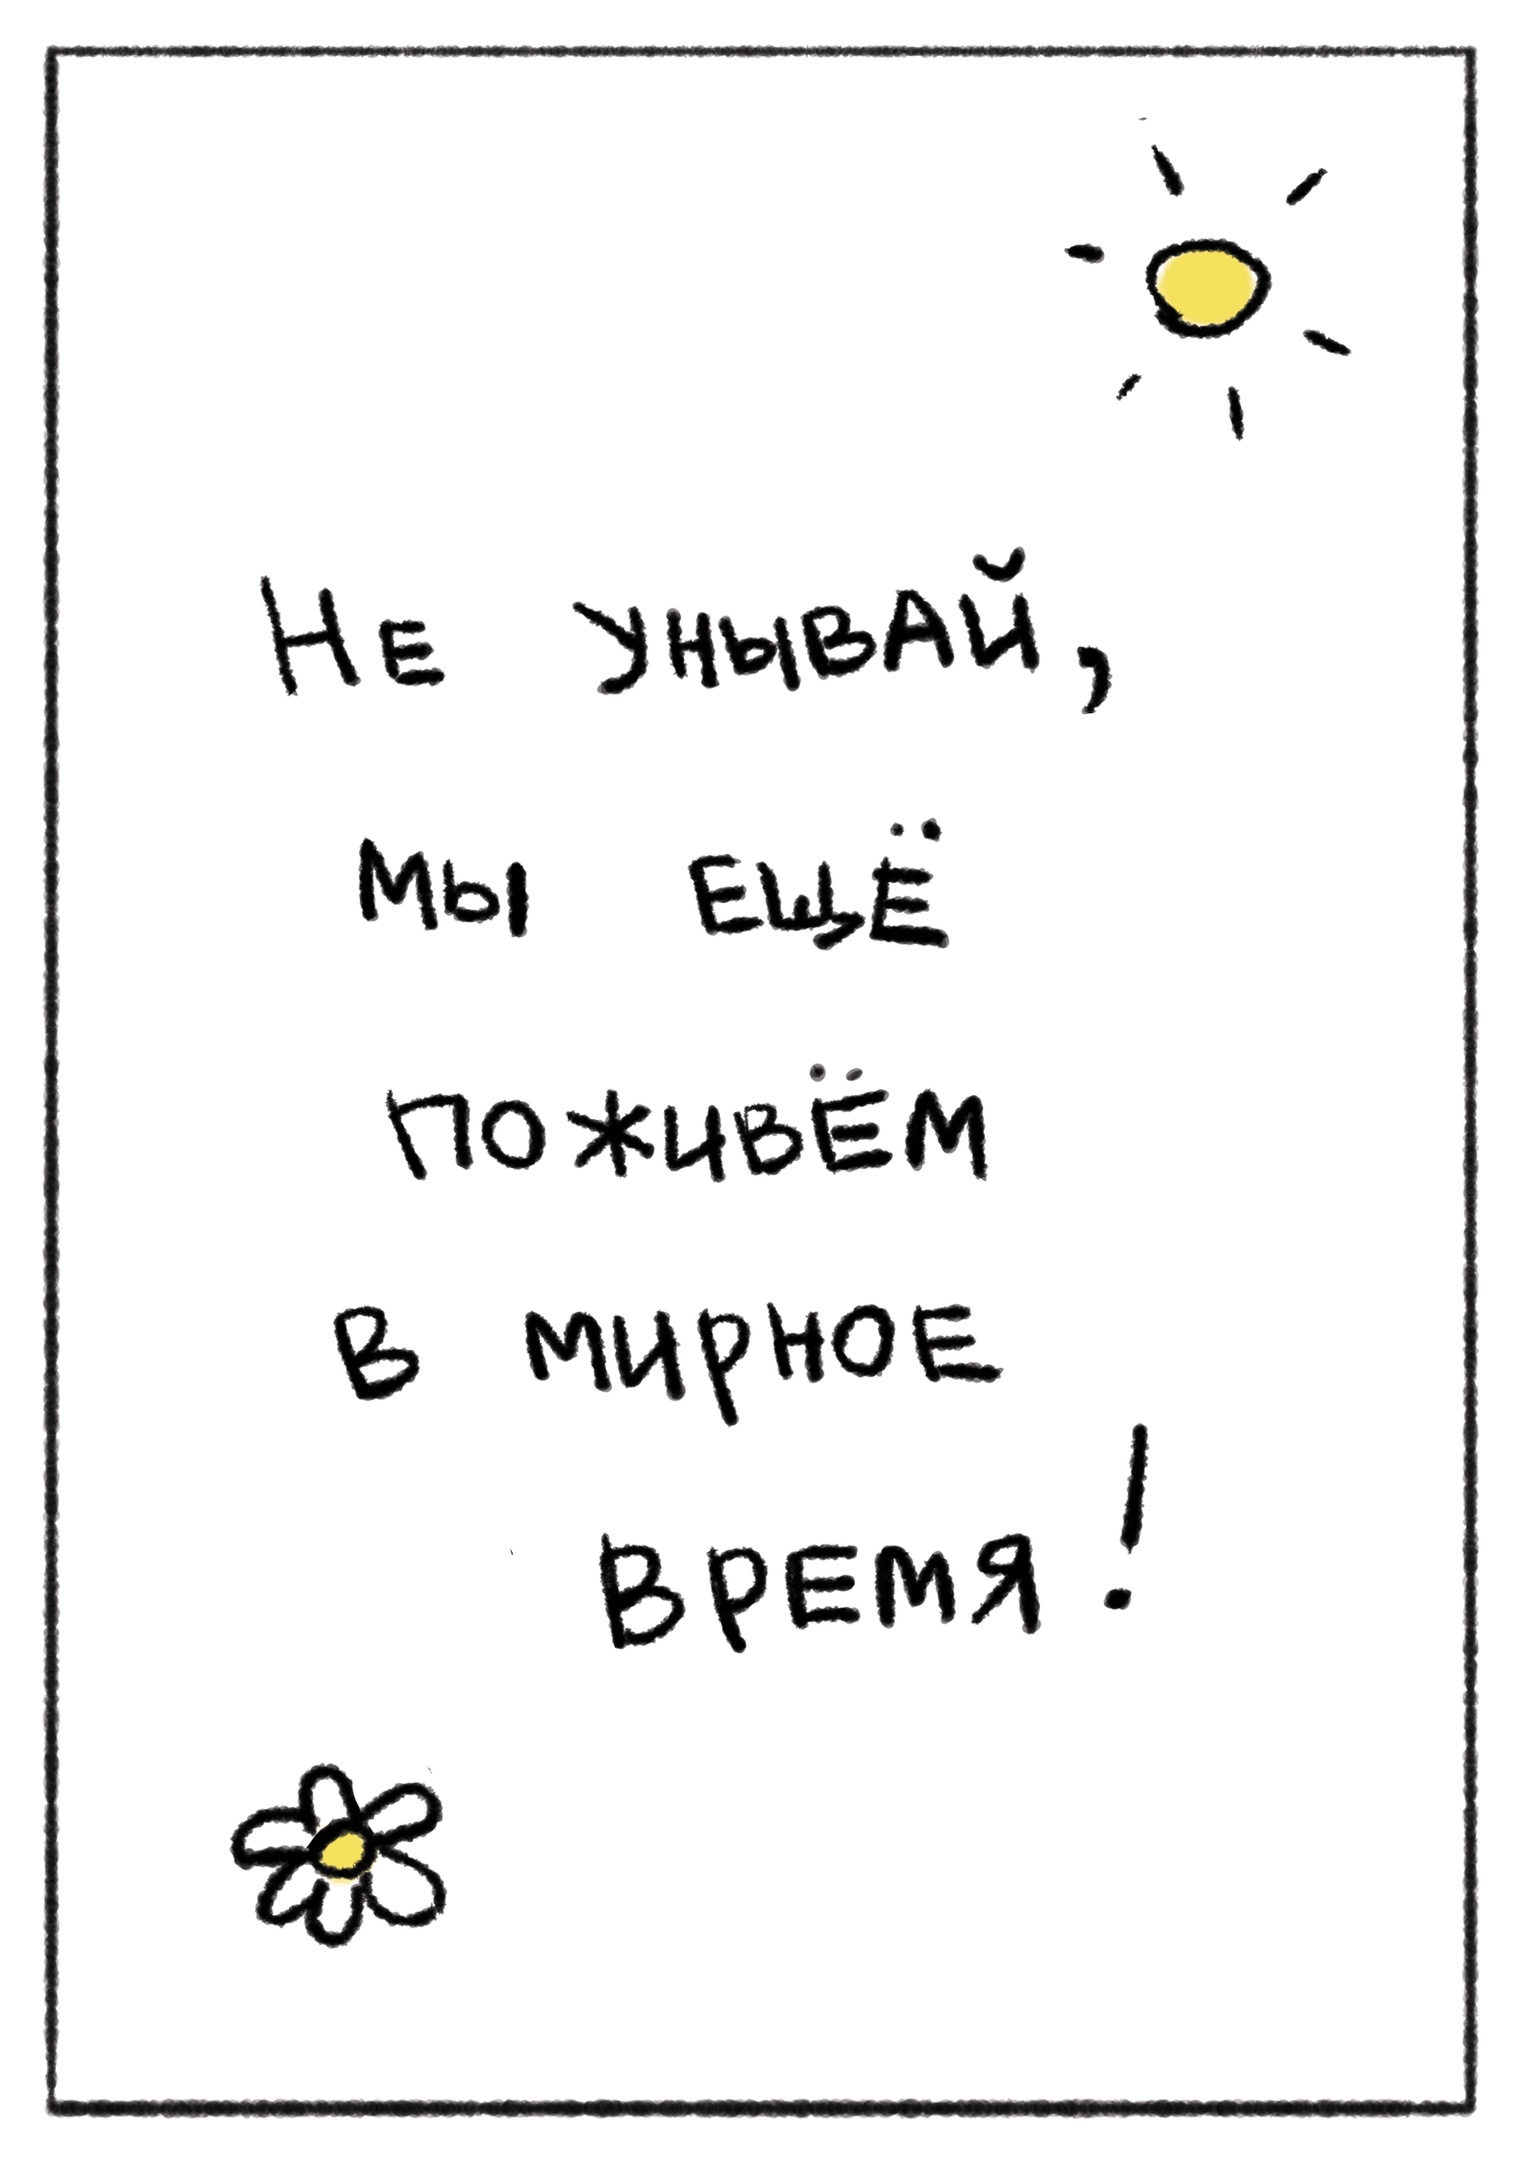 Не унывай,
мы ещё
поживём
в мирное
время!